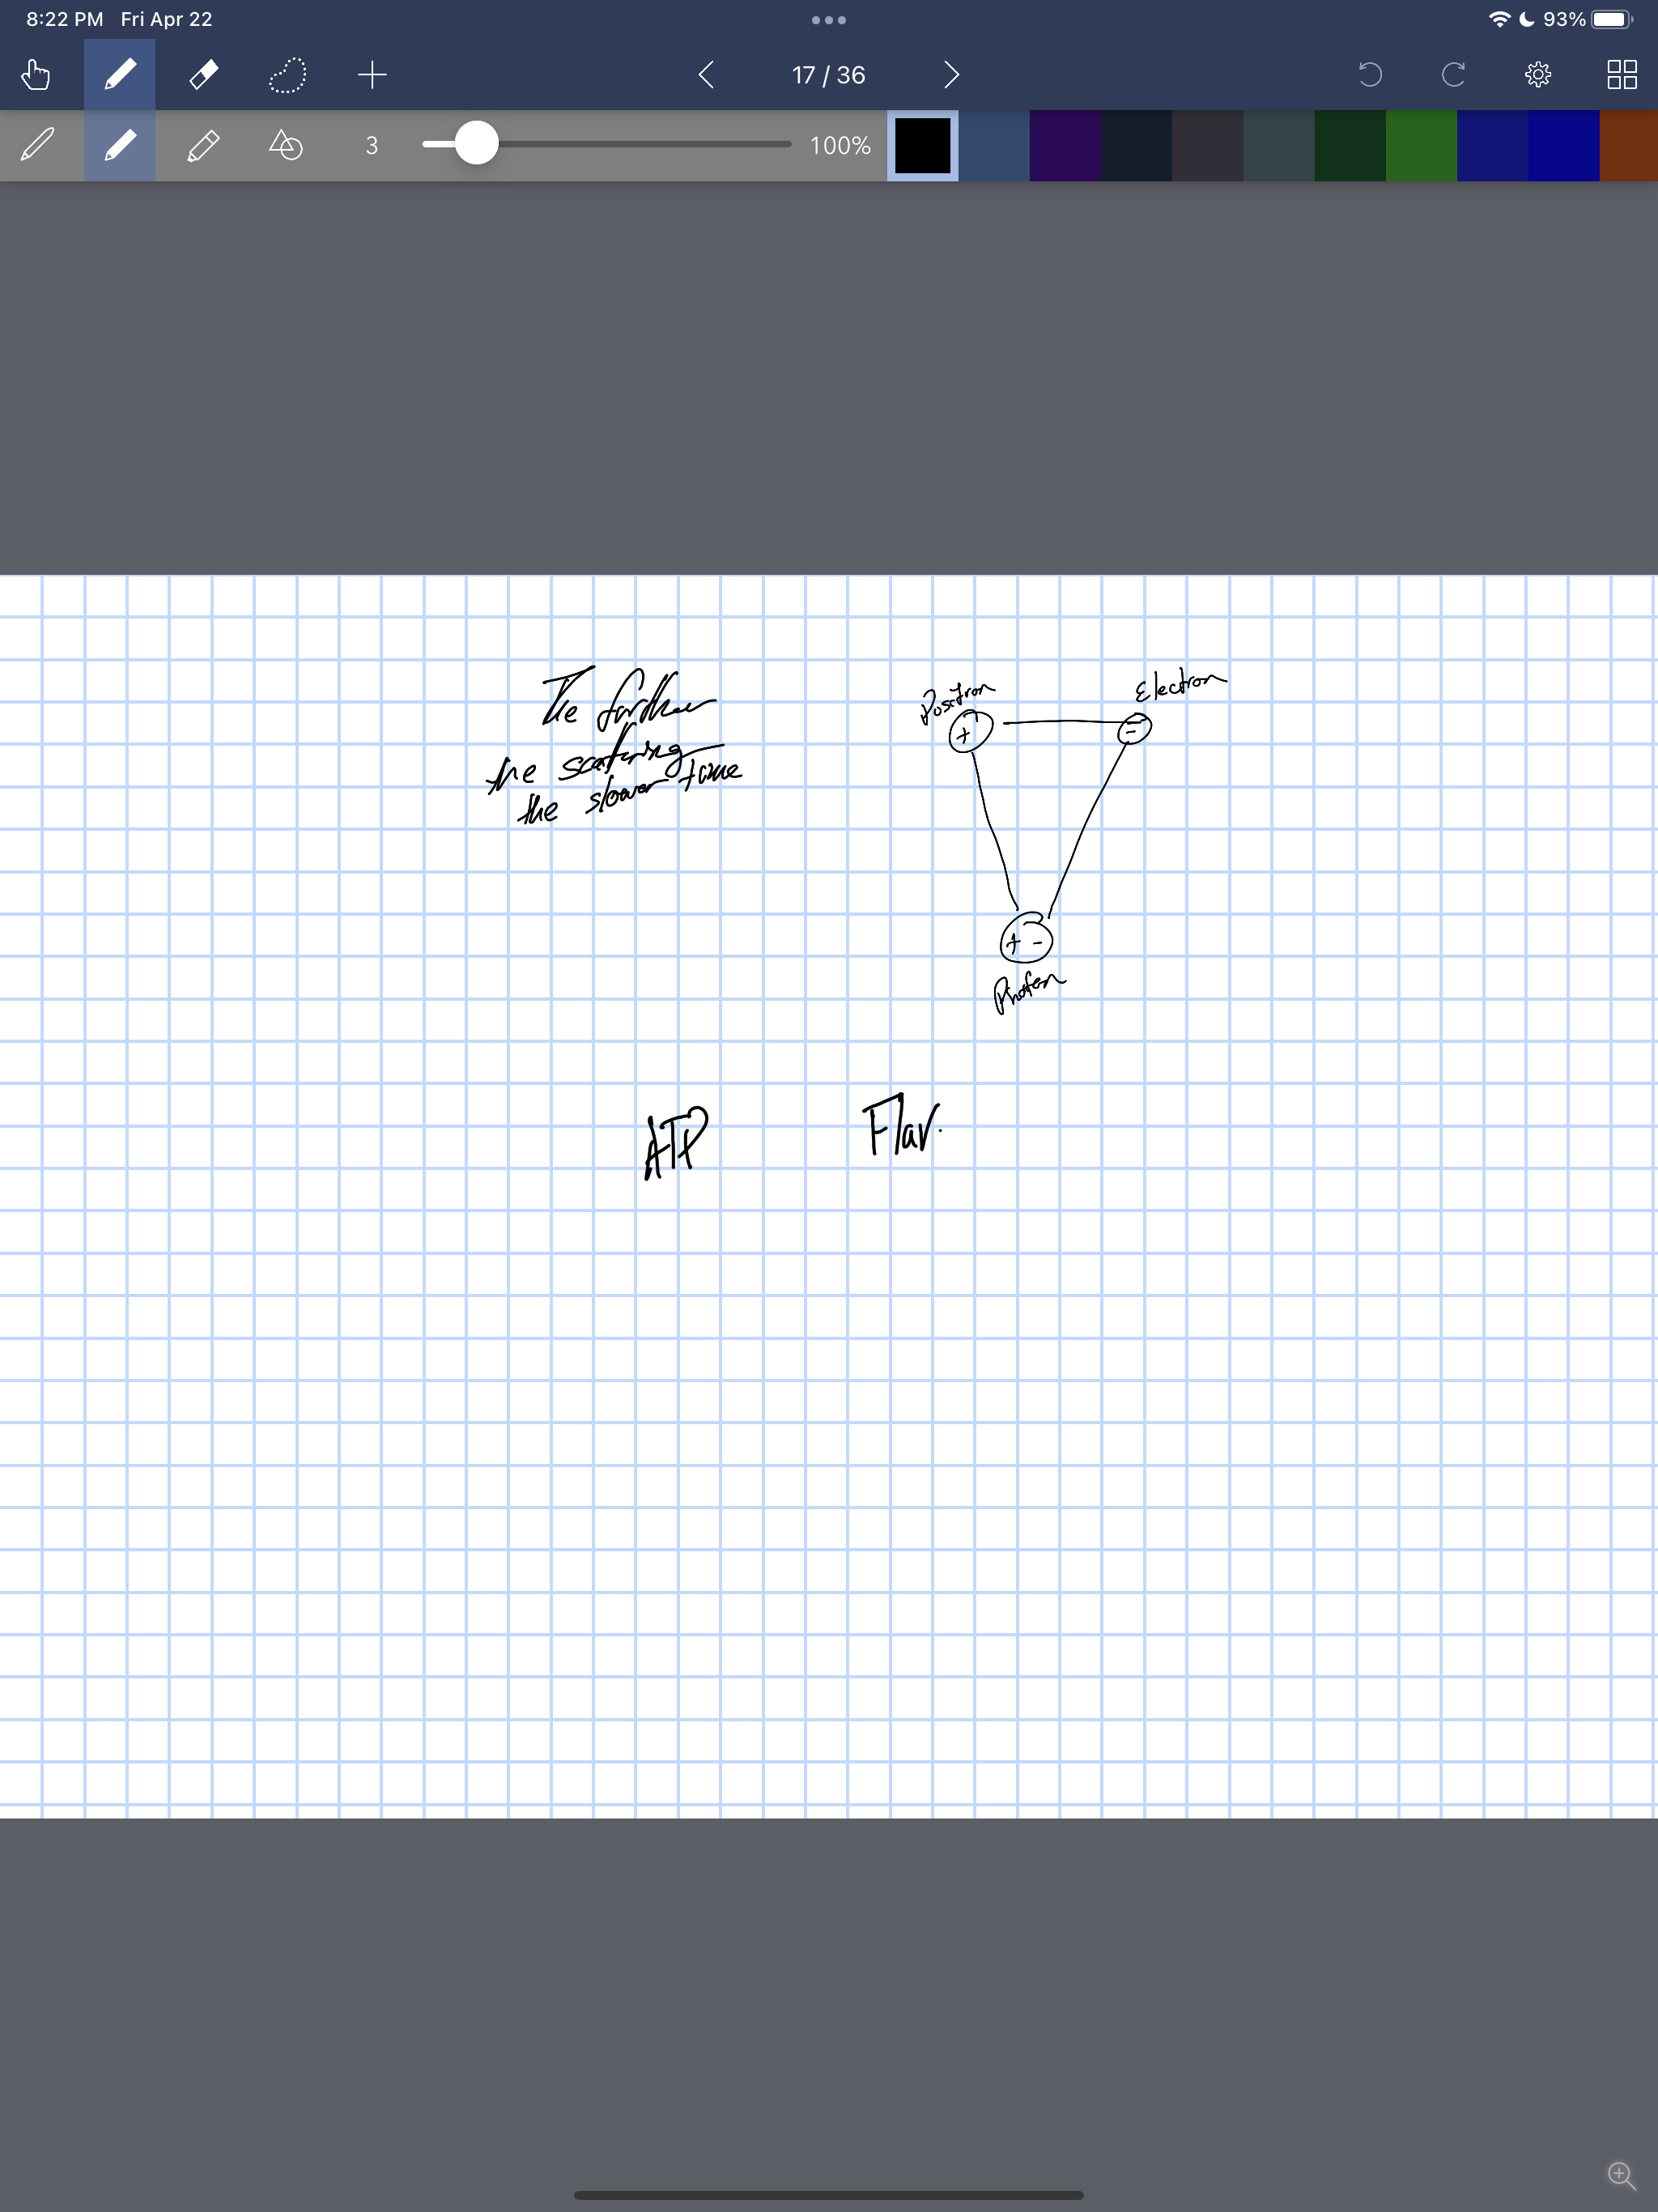 8:22 PM Fri Apr 22
93%
17 / 36
3
100%
The further
the scattering
the slower time
Positron
Electron
+
-
+ -
Photon
ATP
Flav.